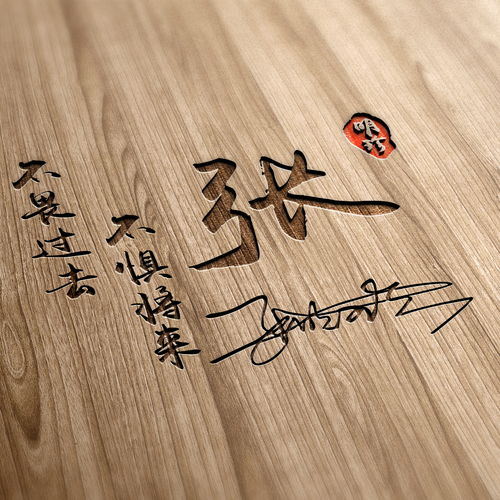 不畏过去
不惧将来
张
明